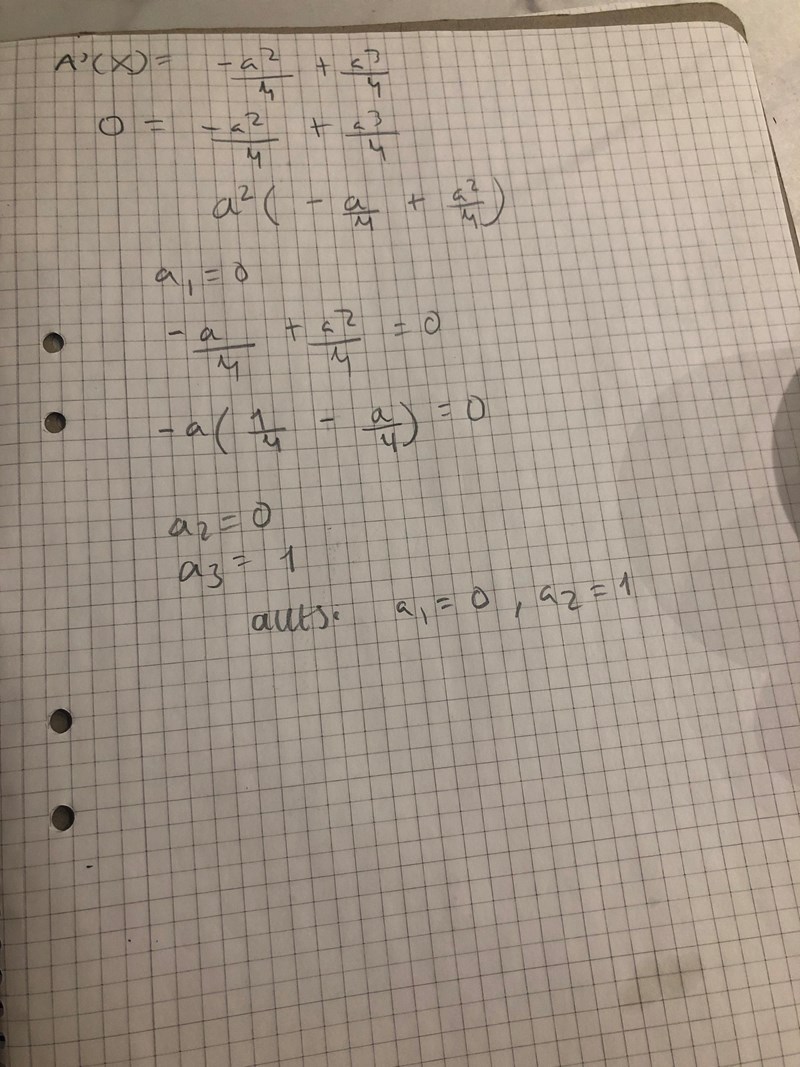 A'(x) = -a²/4 + a³/4
0 = -a²/4 + a³/4
a²( - a/4 + a²/4)
a₁ = 0
-a/4 + a²/4 = 0
-a(1/4 - a/4) = 0
a₂ = 0
a₃ = 1
a₁ = 0 , a₂ = 1